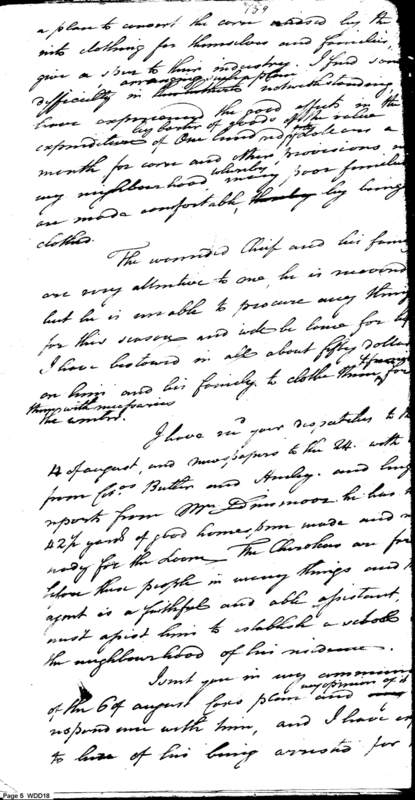 759
a plan to convert the corn raised by the
into clothing for themselves and families,
give a spur to their industry. I find some
arranging such plan
difficulty in notwithstanding
have experienced the good effects in the
by barter of goods of the value
expenditure of One hundred dollars a
month for corn and other provisions in
my neighbourhood, whereby many poor families
are made comfortable, by being
clothed.
The wounded Chief and his family
are very attentive to me, he is recovered
but he is unable to procure any thing
for this season and will be lame for life
I have bestowed in all about fifty dollars
on him and his family to clothe them, for
them with necessaries
the winter.
I have recd your dispatches to the
4 of august, and newspapers to the 24. with
from Cols. Butler and Henley. and
reports from Mr. Dinsmoor he has
42½ yards of good homespun made and
ready for the Loom. The Cherokees are far
before these people in many things and
agent is a faithful and able assistant,
must assist him to establish a school
the neighbourhood of his residence.
I sent you in my
of the 6 of august plan and
my opinion of it
respondence with him, and I have
to hear of his being arrested for
Page 5 WDD18